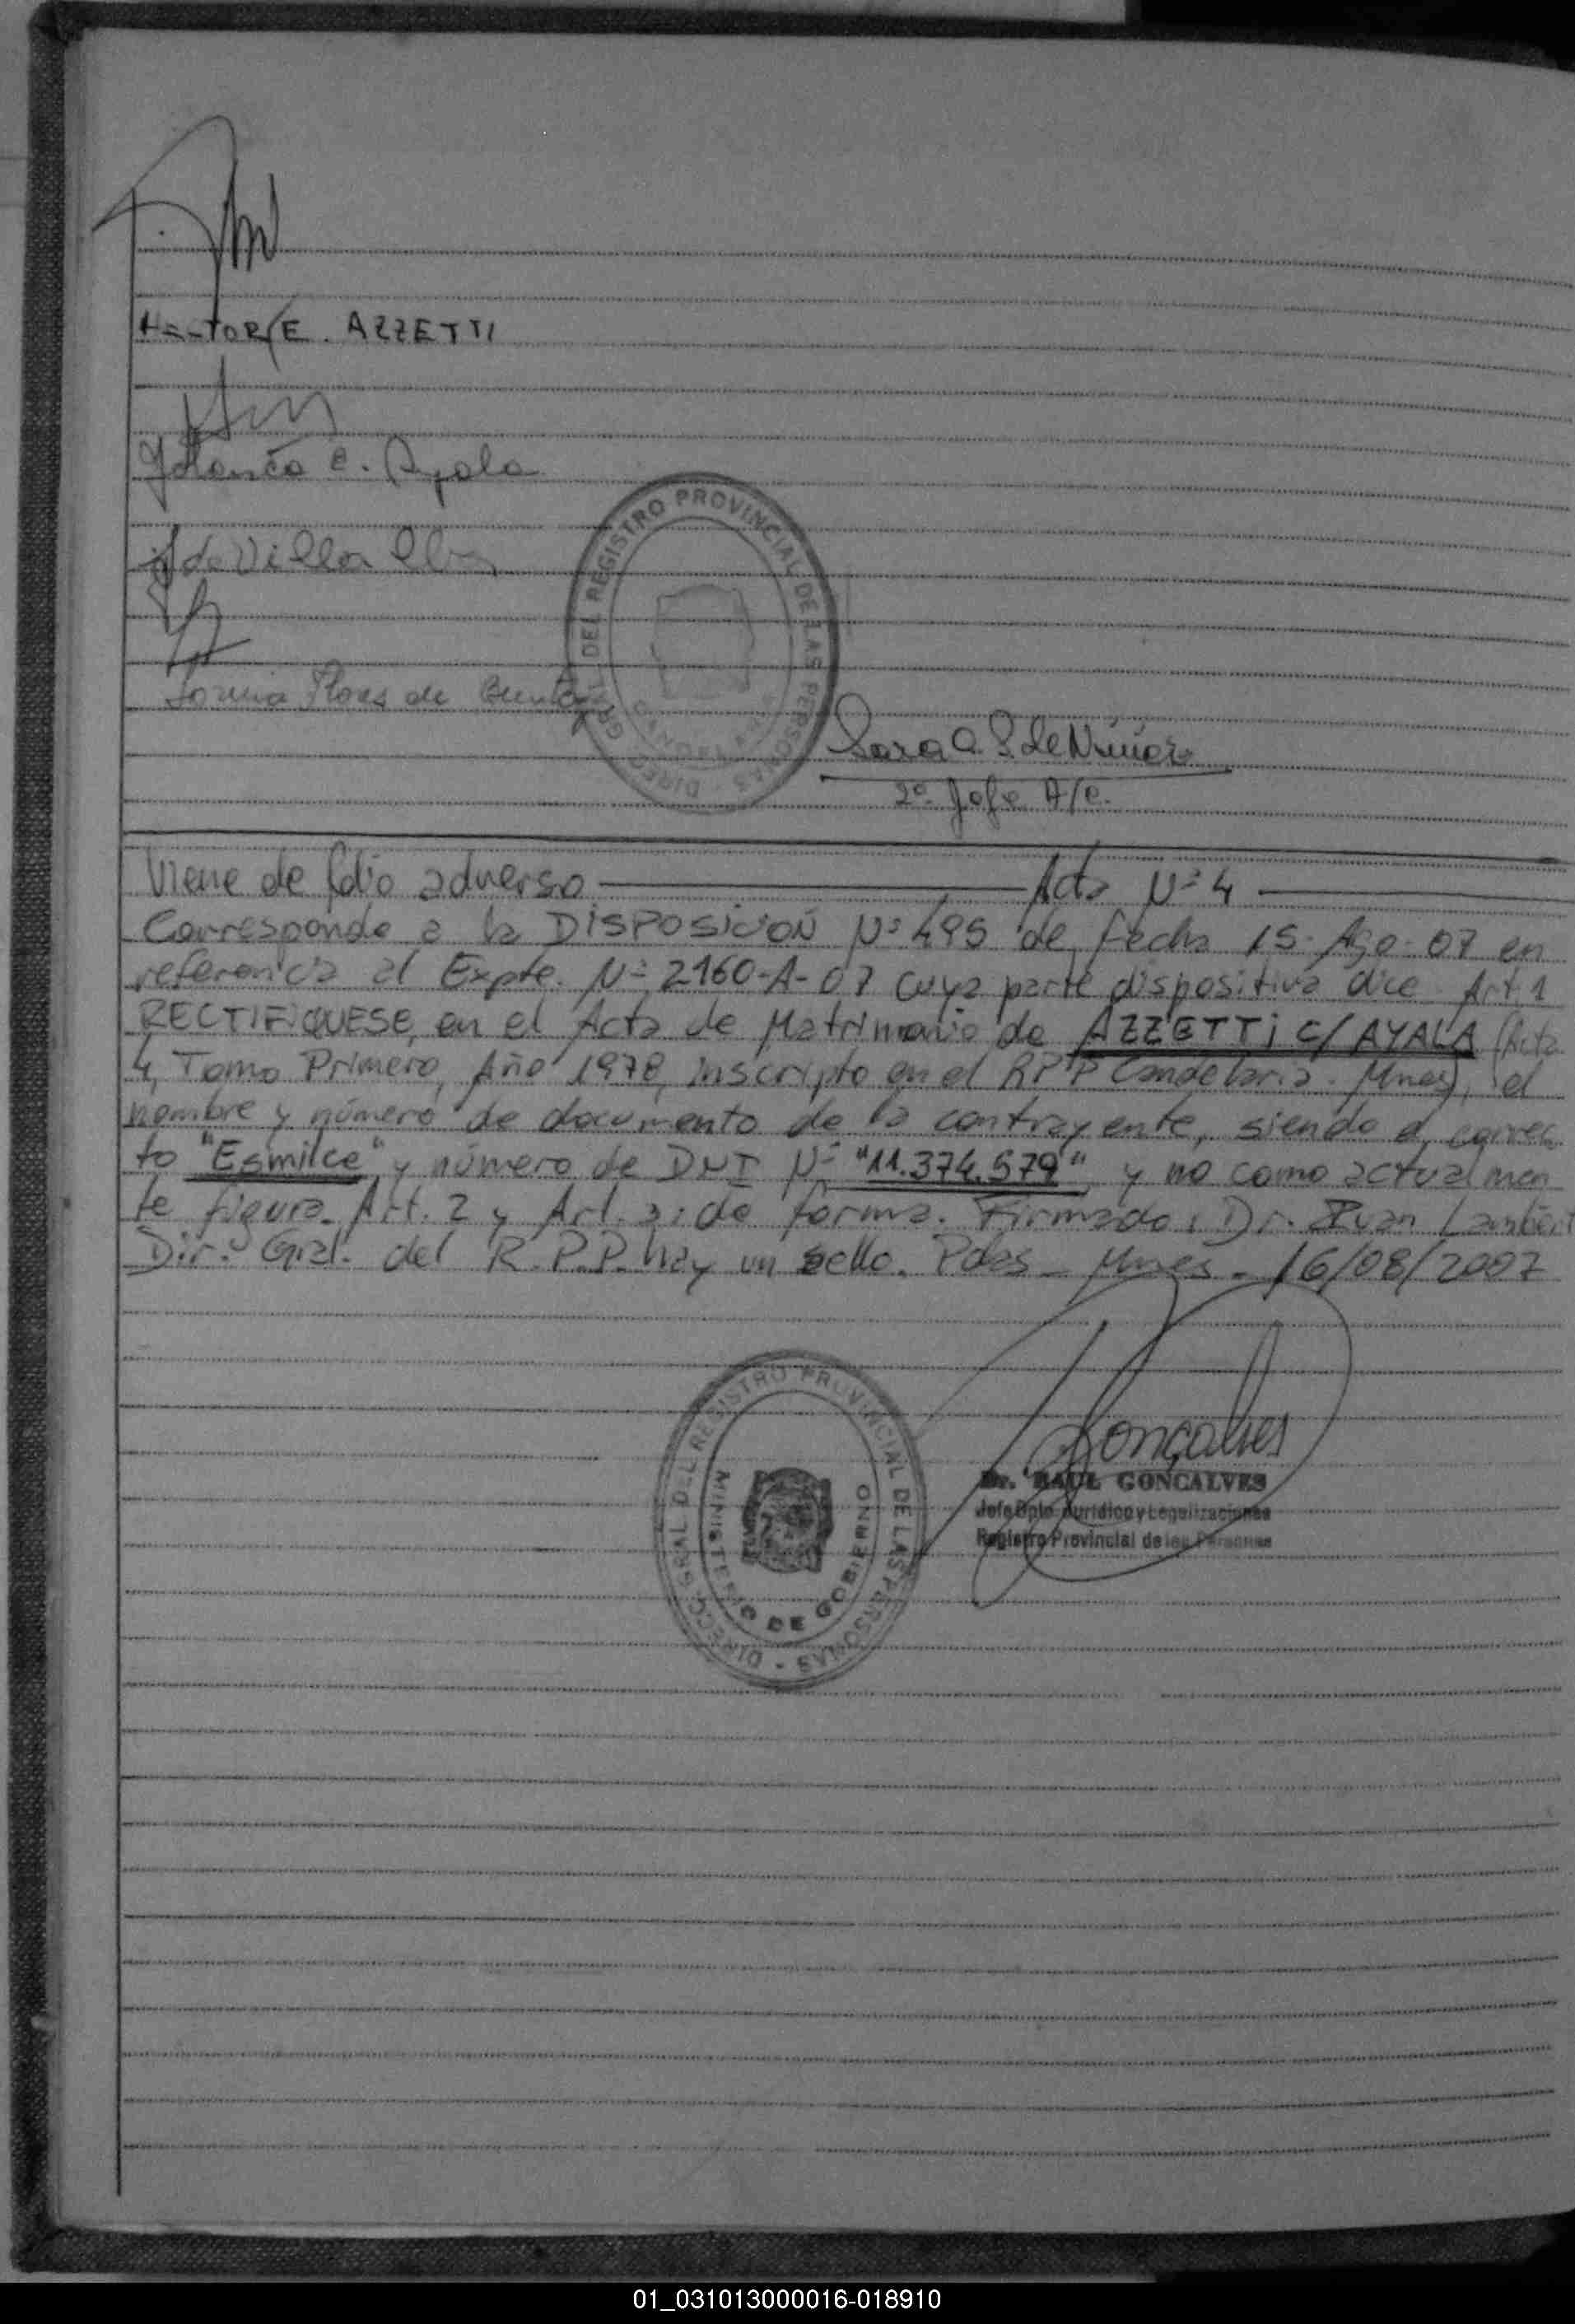 HECTOR E. AZZETTI
E. Ayala
Ida Villalba
Flores de
DIREC. GRAL. DEL REGISTRO PROVINCIAL DE LAS PERSONAS
Sara A. S. de Núñez
2º Jefe A/C.
Viene de folio adverso — Acta Nº 4 —
Corresponde a la DISPOSICIÓN Nº 495 de fecha 15-Ago-07 en
referencia al Expte. Nº 2160-A-07 cuya parte dispositiva dice Art. 1
RECTIFIQUESE, en el Acta de Matrimonio de AZZETTI C/ AYALA (Acta
4, Tomo Primero, Año 1978, inscripto en el RPP Candelaria. Mnes), el
nombre y número de documento de la contrayente, siendo el correc
to "Esmilce" y número de DNI Nº "11.374.579" y no como actualmen
te figura. Art. 2 y Art. 3: de forma. Firmado: Dr. Ivan
Dir. Gral. del R.P.P. hay un sello. Pdas - Mnes - 16/08/2007
Goncalves
Dr. RAUL GONCALVES
Jefe Dpto. Jurídico y Legalizaciones
Registro Provincial de las Personas
DIRECC. GRAL DEL REGISTRO PROVINCIAL DE LAS PERSONAS -
MINISTERIO DE GOBIERNO
01_031013000016-018910